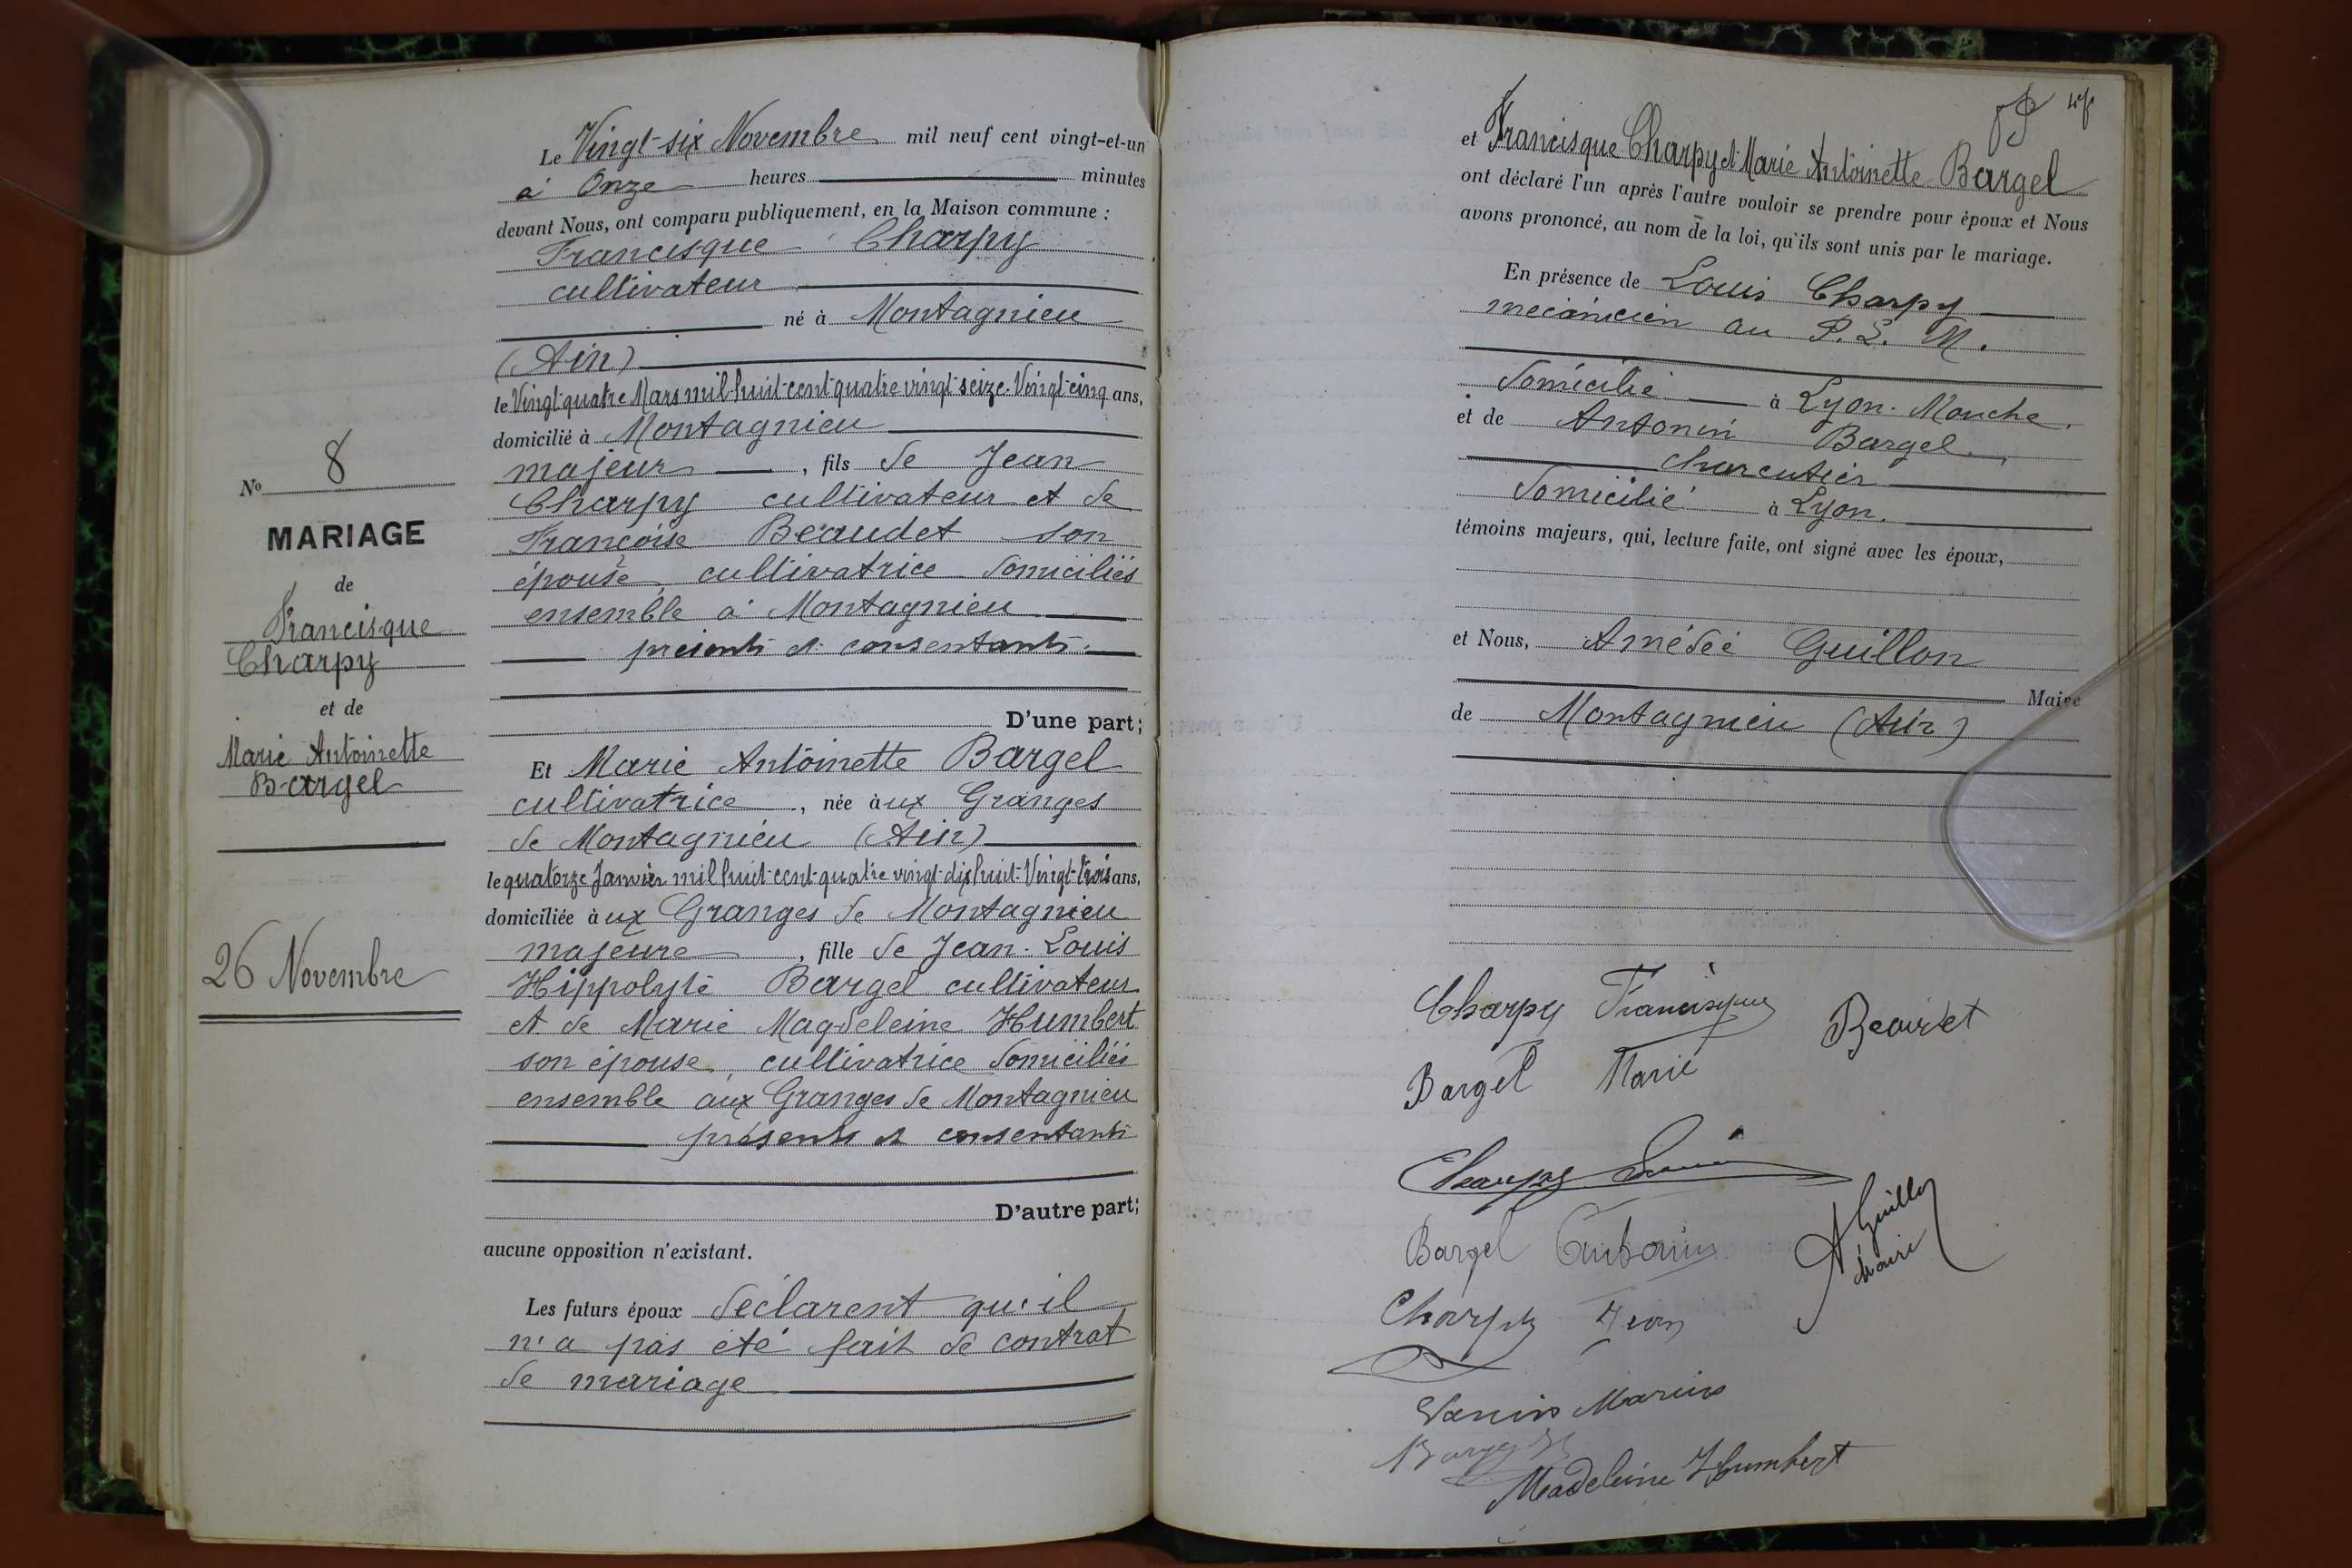 Le Vingt-six Novembre mil neuf cent vingt-et-un
à Onze heures minutes
devant Nous, ont comparu publiquement, en la Maison commune :
Francisque Charpy
cultivateur
né à Montagnieu
(Ain)
le Vingt-quatre Mars mil-huit-cent-quatre-vingt-seize. Vingt-cinq ans,
domicilié à Montagnieu
majeur, fils de Jean
Charpy cultivateur et de
Françoise Beaudet son
épouse, cultivatrice domiciliés
ensemble à Montagnieu
présents et consentants.
D'une part;
Et Marie Antoinette Bargel
cultivatrice, née àux Granges
de Montagnieu (Ain)
le quatorze Janvier mil huit-cent-quatre vingt-dix huit. Vingt-trois ans,
domiciliée àux Granges de Montagnieu
majeure, fille de Jean-Louis
Hippolyte Bargel cultivateur
et de Marie Magdeleine Humbert
son épouse, cultivatrice domiciliés
ensemble aux Granges de Montagnieu
présents et consentants
D'autre part;
aucune opposition n'existant.
Les futurs époux déclarent qu'il
n'a pas été fait de contrat
de mariage
No 8
MARIAGE
de
Francisque
Charpy
et de
Marie Antoinette
Bargel
26 Novembre
et Francisque Charpy et Marie Antoinette Bargel
ont déclaré l'un après l'autre vouloir se prendre pour époux et Nous
avons prononcé, au nom de la loi, qu'ils sont unis par le mariage.
En présence de Louis Charpy
mécanicien au P. L. M.
domicilié à Lyon-Mouche.
et de Antonin Bargel,
charcutier
domicilié à Lyon.
témoins majeurs, qui, lecture faite, ont signé avec les époux,
et Nous, Amédée Guillon
Maire
de Montagnieu (Ain)
Charpy Francisque
Beaudet
Bargel Marie
Charpy Louis
Bargel Antonin
A Guillon
Maire
Charpy Jean
Marius
Madeleine Humbert